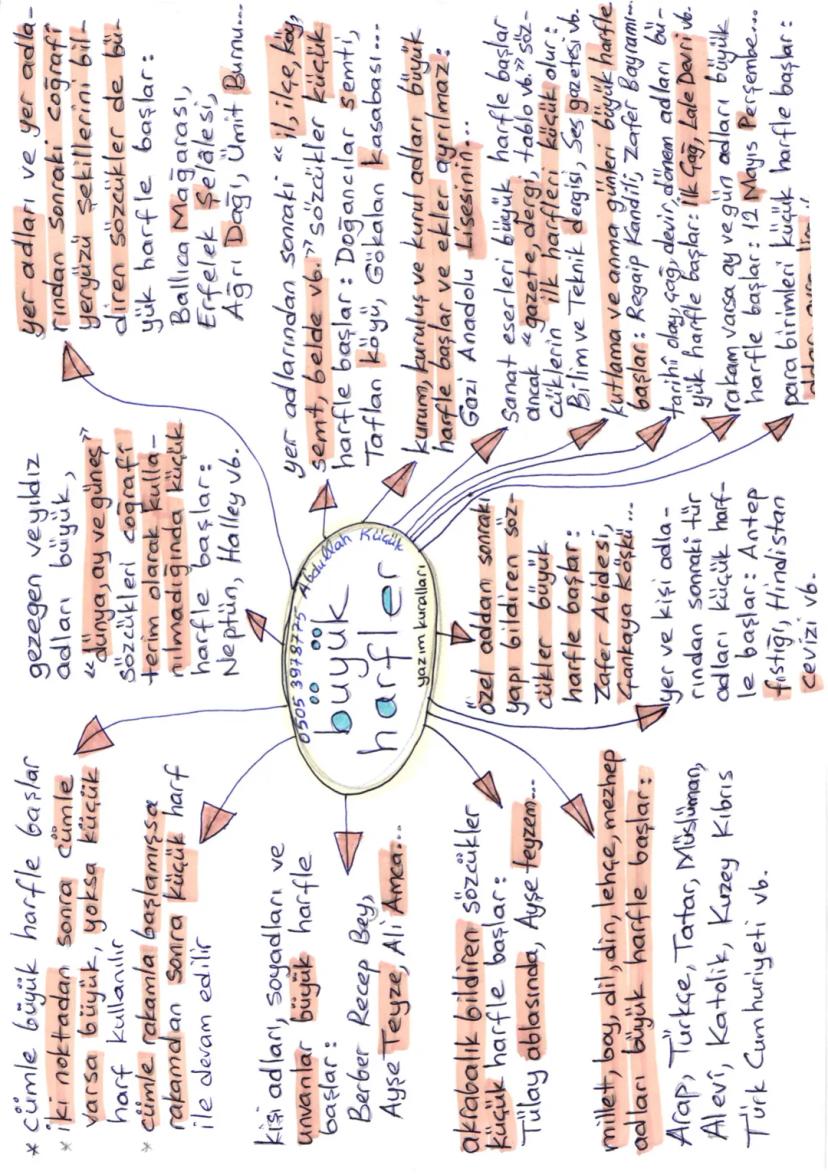 * cümle büyük harfle başlar
* iki noktadan sonra cümle
varsa büyük, yoksa küçük
harf kullanılır
* cümle rakamla başlamışsa
rakamdan sonra küçük harf
ile devam edilir
gezegen ve yıldız
adları büyük,
"dünya, ay ve güneş"
sözcükleri coğrafi
terim olarak kulla-
nılmadığında küçük
harfle başlar:
Neptün, Halley vb.
yer adları ve yer adla-
rından sonraki coğrafi
yeryüzü şekillerini bil-
diren sözcükler de bü-
yük harfle başlar:
Ballıca Mağarası,
Erfelek Şelâlesi,
Ağrı Dağı, Ümit Burnu...
kişi adları, soyadları ve
unvanlar büyük harfle
başlar:
Berber Recep Bey,
Ayşe Teyze, Ali Amca...
0505 3978775 - Abdullah Küçük
büyük
harfler
yazım kuralları
yer adlarından sonraki "il, ilçe, köy,
semt, belde vb." sözcükler küçük
harfle başlar: Doğancılar semti,
Taflan köyü, Gökalan kasabası...
kurum, kuruluş ve kurul adları büyük
harfle başlar ve ekler ayrılmaz:
Gazi Anadolu Lisesinin...
akrabalık bildiren sözcükler
küçük harfle başlar:
Tülay ablasında, Ayşe teyzem...
özel addan sonraki
yapı bildiren söz-
cükler büyük
harfle başlar:
Zafer Abidesi,
Çankaya Köşkü...
sanat eserleri büyük harfle başlar
ancak "gazete, dergi, tablo vb." söz-
cüklerin ilk harfleri küçük olur:
Bilim ve Teknik dergisi, Ses gazetesi vb.
kutlama ve anma günleri büyük harfle
başlar: Regaip Kandili, Zafer Bayramı...
millet, boy, dil, din, lehçe, mezhep
adları büyük harfle başlar:
Arap, Türkçe, Tatar, Müslüman,
Alevî, Katolik, Kuzey Kıbrıs
Türk Cumhuriyeti vb.
yer ve kişi adla-
rından sonraki tür
adları küçük harf-
le başlar: Antep
fıstığı, Hindistan
cevizi vb.
tarihî olay, çağ, devir, dönem adları bü-
yük harfle başlar: İlk Çağ, Lale Devri vb.
rakam varsa ay ve gün adları büyük
harfle başlar: 12 Mayıs Perşembe...
para birimleri küçük harfle başlar: